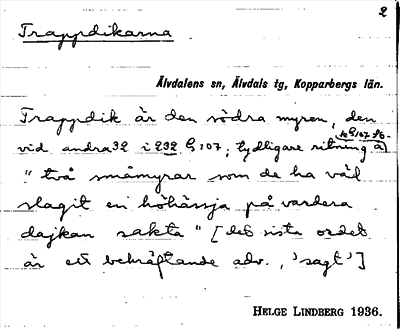 2
Trappdikarna
Älvdalens sn, Älvdals tg, Kopparbergs län.
Trappdik är den södra myren, den
vid andra 32 i 232 G 107; tydligare ritning
" två småmyrar som de ha väl
slagit en höhässja på vardera
dajkan sakta " [det sista ordet
är ett bekräftande adv., 'sagt']
HELGE LINDBERG 1936.